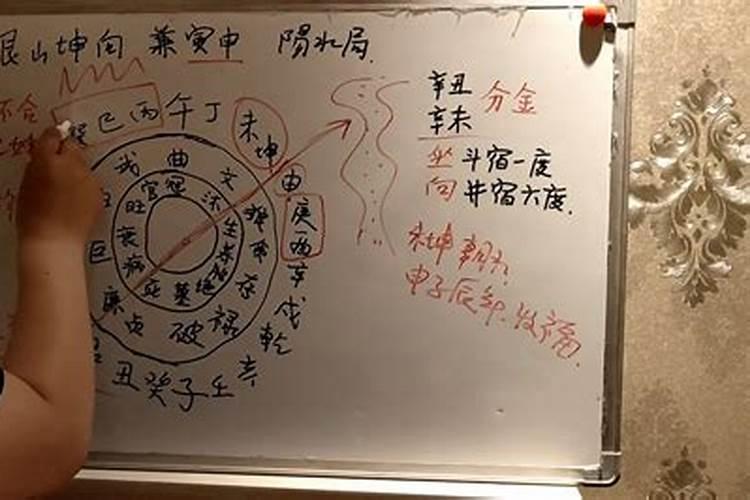 艮山坤向 兼寅申 陽水局
不合
巳丙午丁
未
坤
申
庚
酉
辛
戌
乾
亥
壬
子
癸
丑
武 曲 文
官 冠 沐
旺 生
衰 养
病 死 墓 绝
巨
存
禄
破
貞
廉
辛丑
辛未
分金
坐斗宿一度
向井宿六度
未坤朝水
申子辰年发福